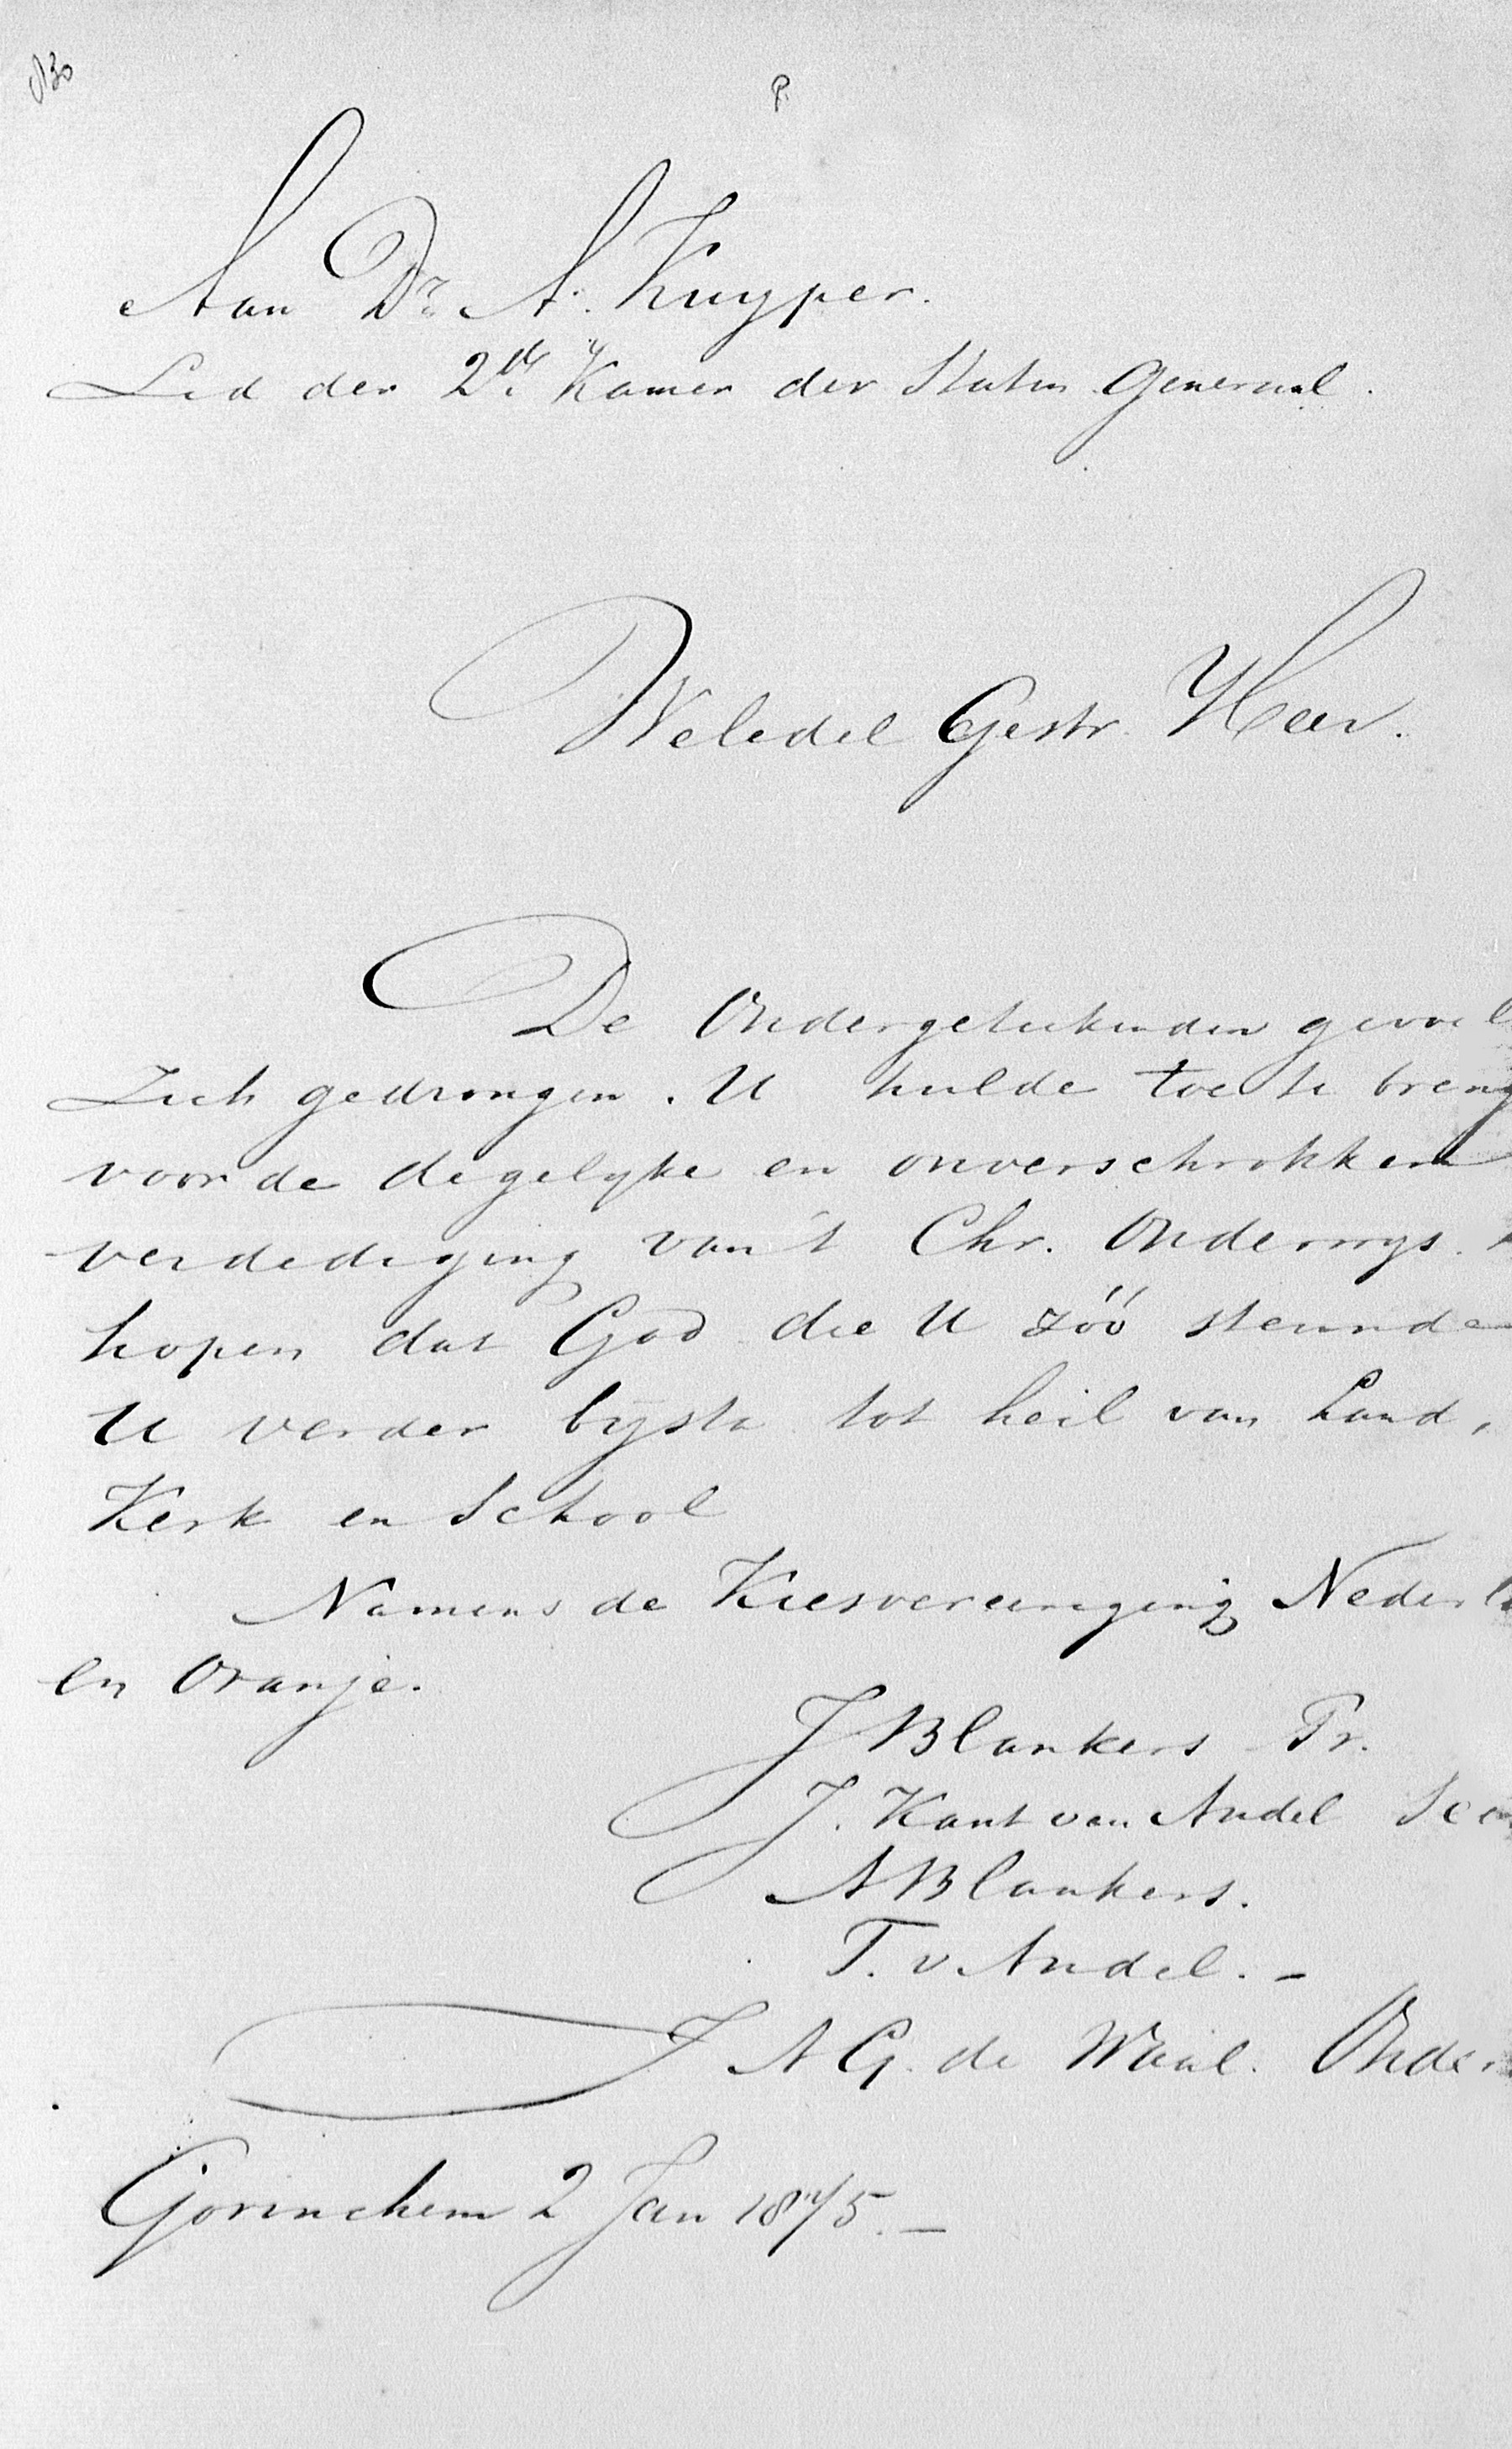 P.
Aan Dr. A. Kuyper.
Lid der 2de Kamer der Staten Generaal.
Weledel Gestr. Heer.
De Ondergeteekenden gevoel
Zich gedrongen. U hulde toe te breng
voor de degelyke en onverschrokken
verdediging van 't Chr. Onderwys.
hopen dat God die U zóó steunde
U verder bijsta tot heil van Land,
Kerk en School
Namens de Kiesvereeniging Nederla
en Oranje.
J Blankers Pr.
J. Kant van Andel Sec
A Blankers.
T. v Andel. -
J A G. de Waal. Onder
Gorinchem 2 Jan 1875. -